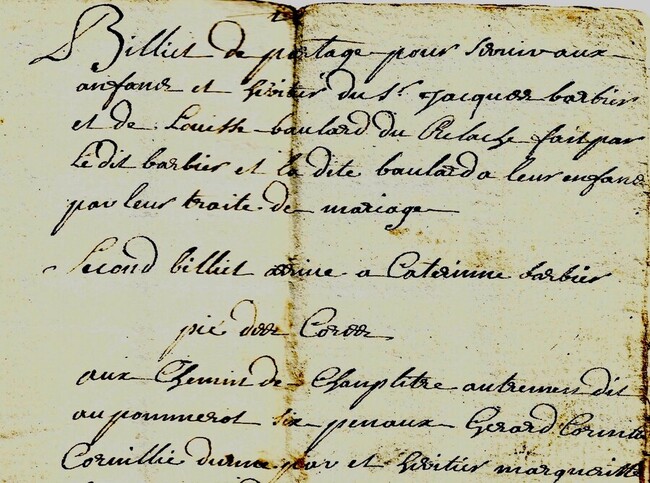 Billiet de partage pour servir aux
anfans et heritié du Sr Jacques barbier
et de Louisse baulard du Relache fait par
Le dit barbier et la dite baulard a leur enfans
par leur traite de mariage
Second billiet arrive a Caterinne barbier
pié des Cordes
aux Chemin de Champlitre autremen dit
au pommerot six penaux Gerard
Cornillie d'unne par et heritier marguerite